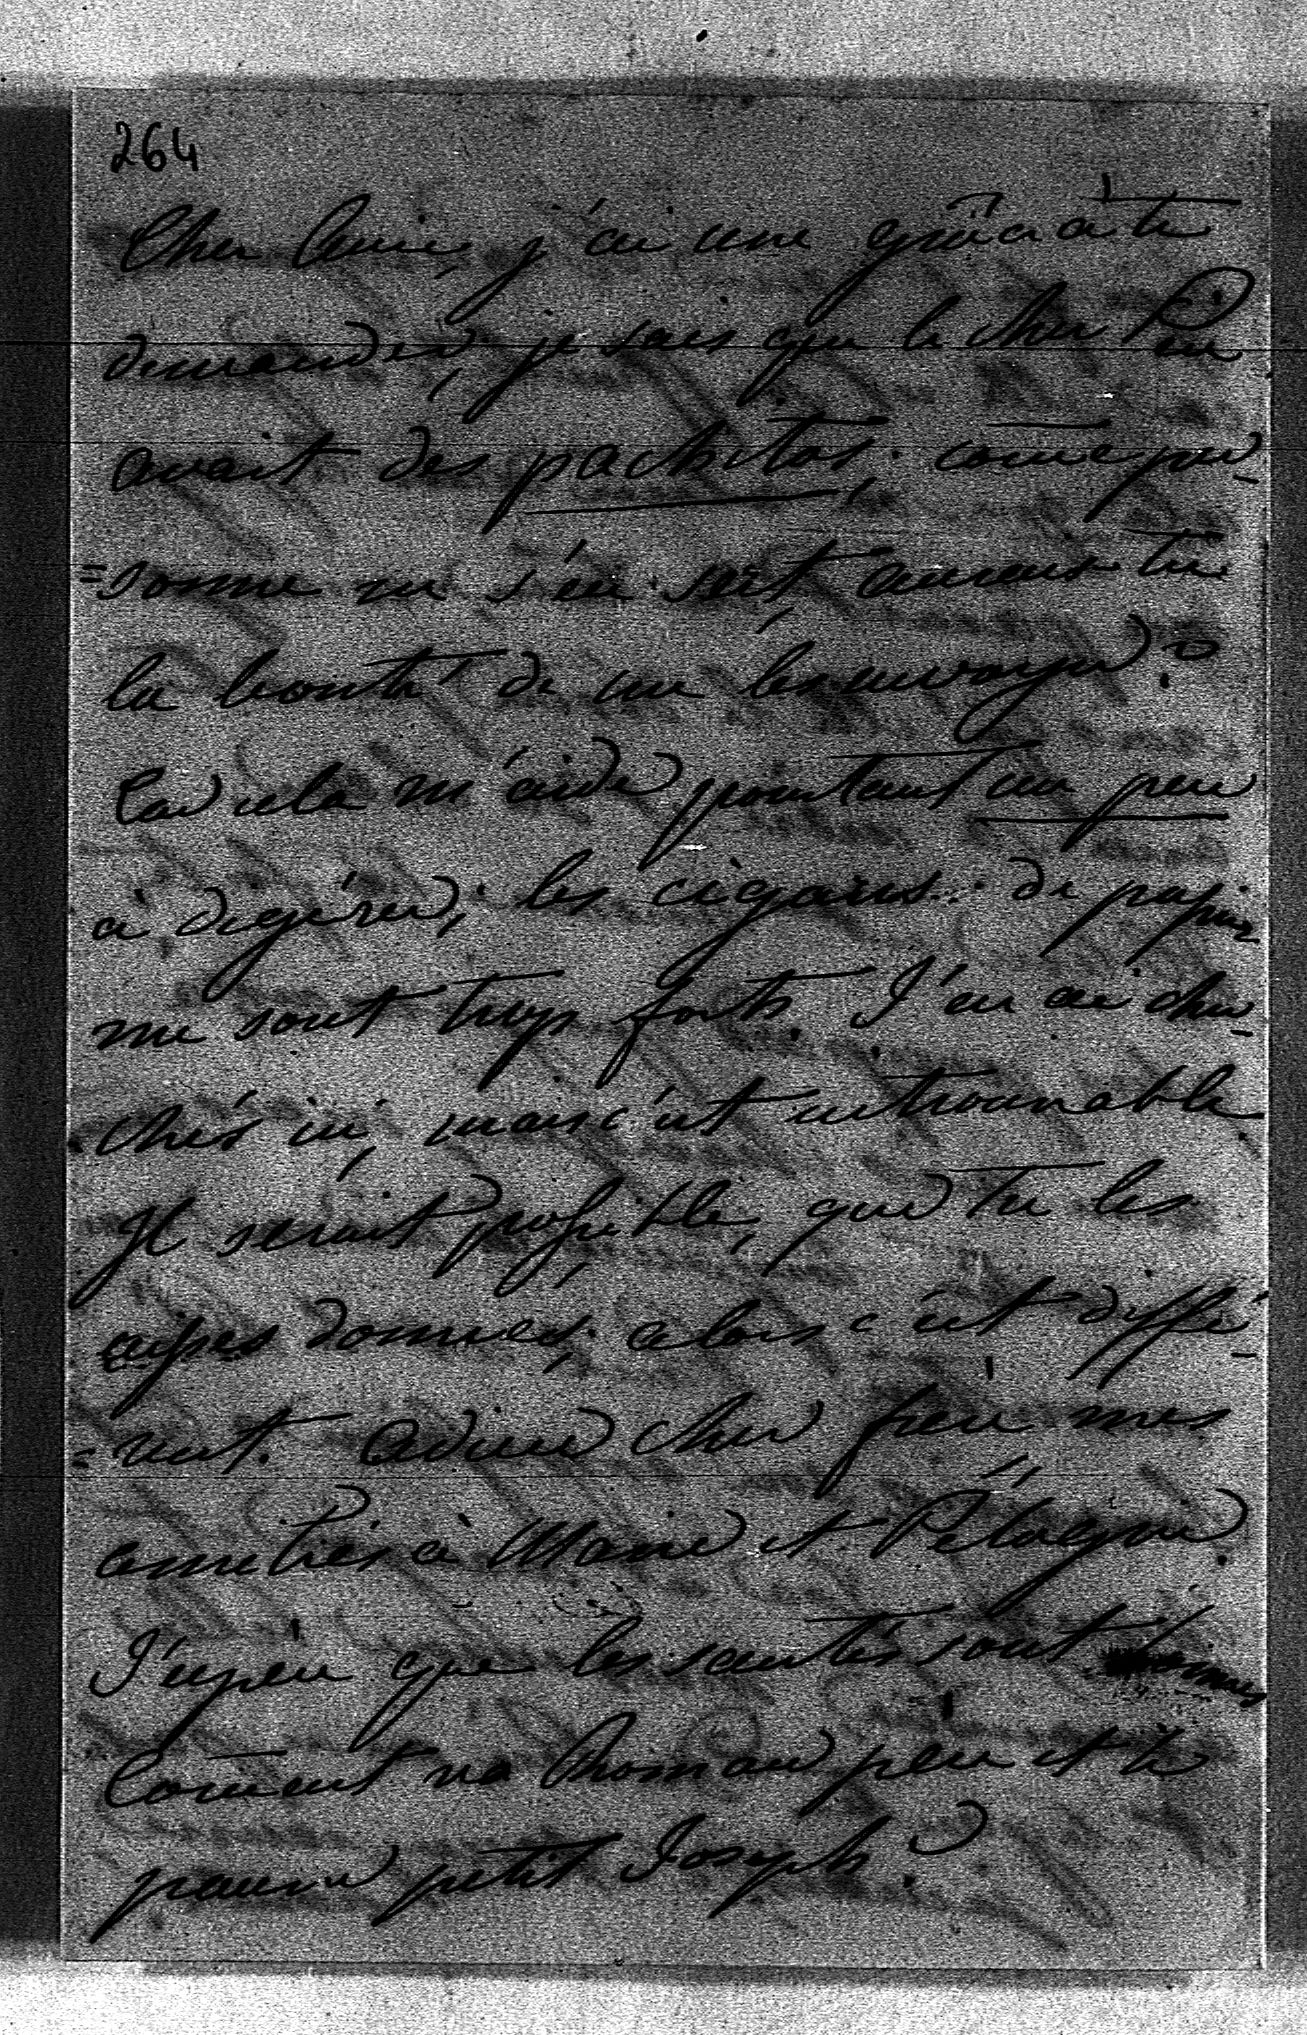 264
Cher Ami, j'ai une grâce à te
demander, je sais que le cher Père
avait des pachitos. come per-
=sonne ne s'en sert, aurais-tu
la bonté de me les envoyer?
Car cela m'aide pourtant un peu
à digérer; les cigares de papier
me sont trop forts. J'en ai cher-
chés ici, mais c'est introuvable
Il serait possible, que tu les
aies donnés, alors c'est diffé-
=rent. Adieu cher frère mes
amitiés à Marie et Pélagie.
J'espère que les santés sont bonnes
Coment va père et le
pauvre petit Joseph?